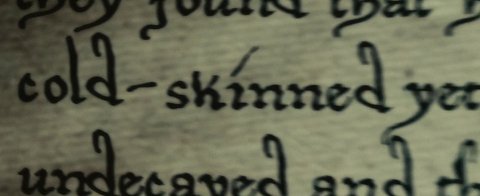 they found that
cold-skinned yet
undecayed and